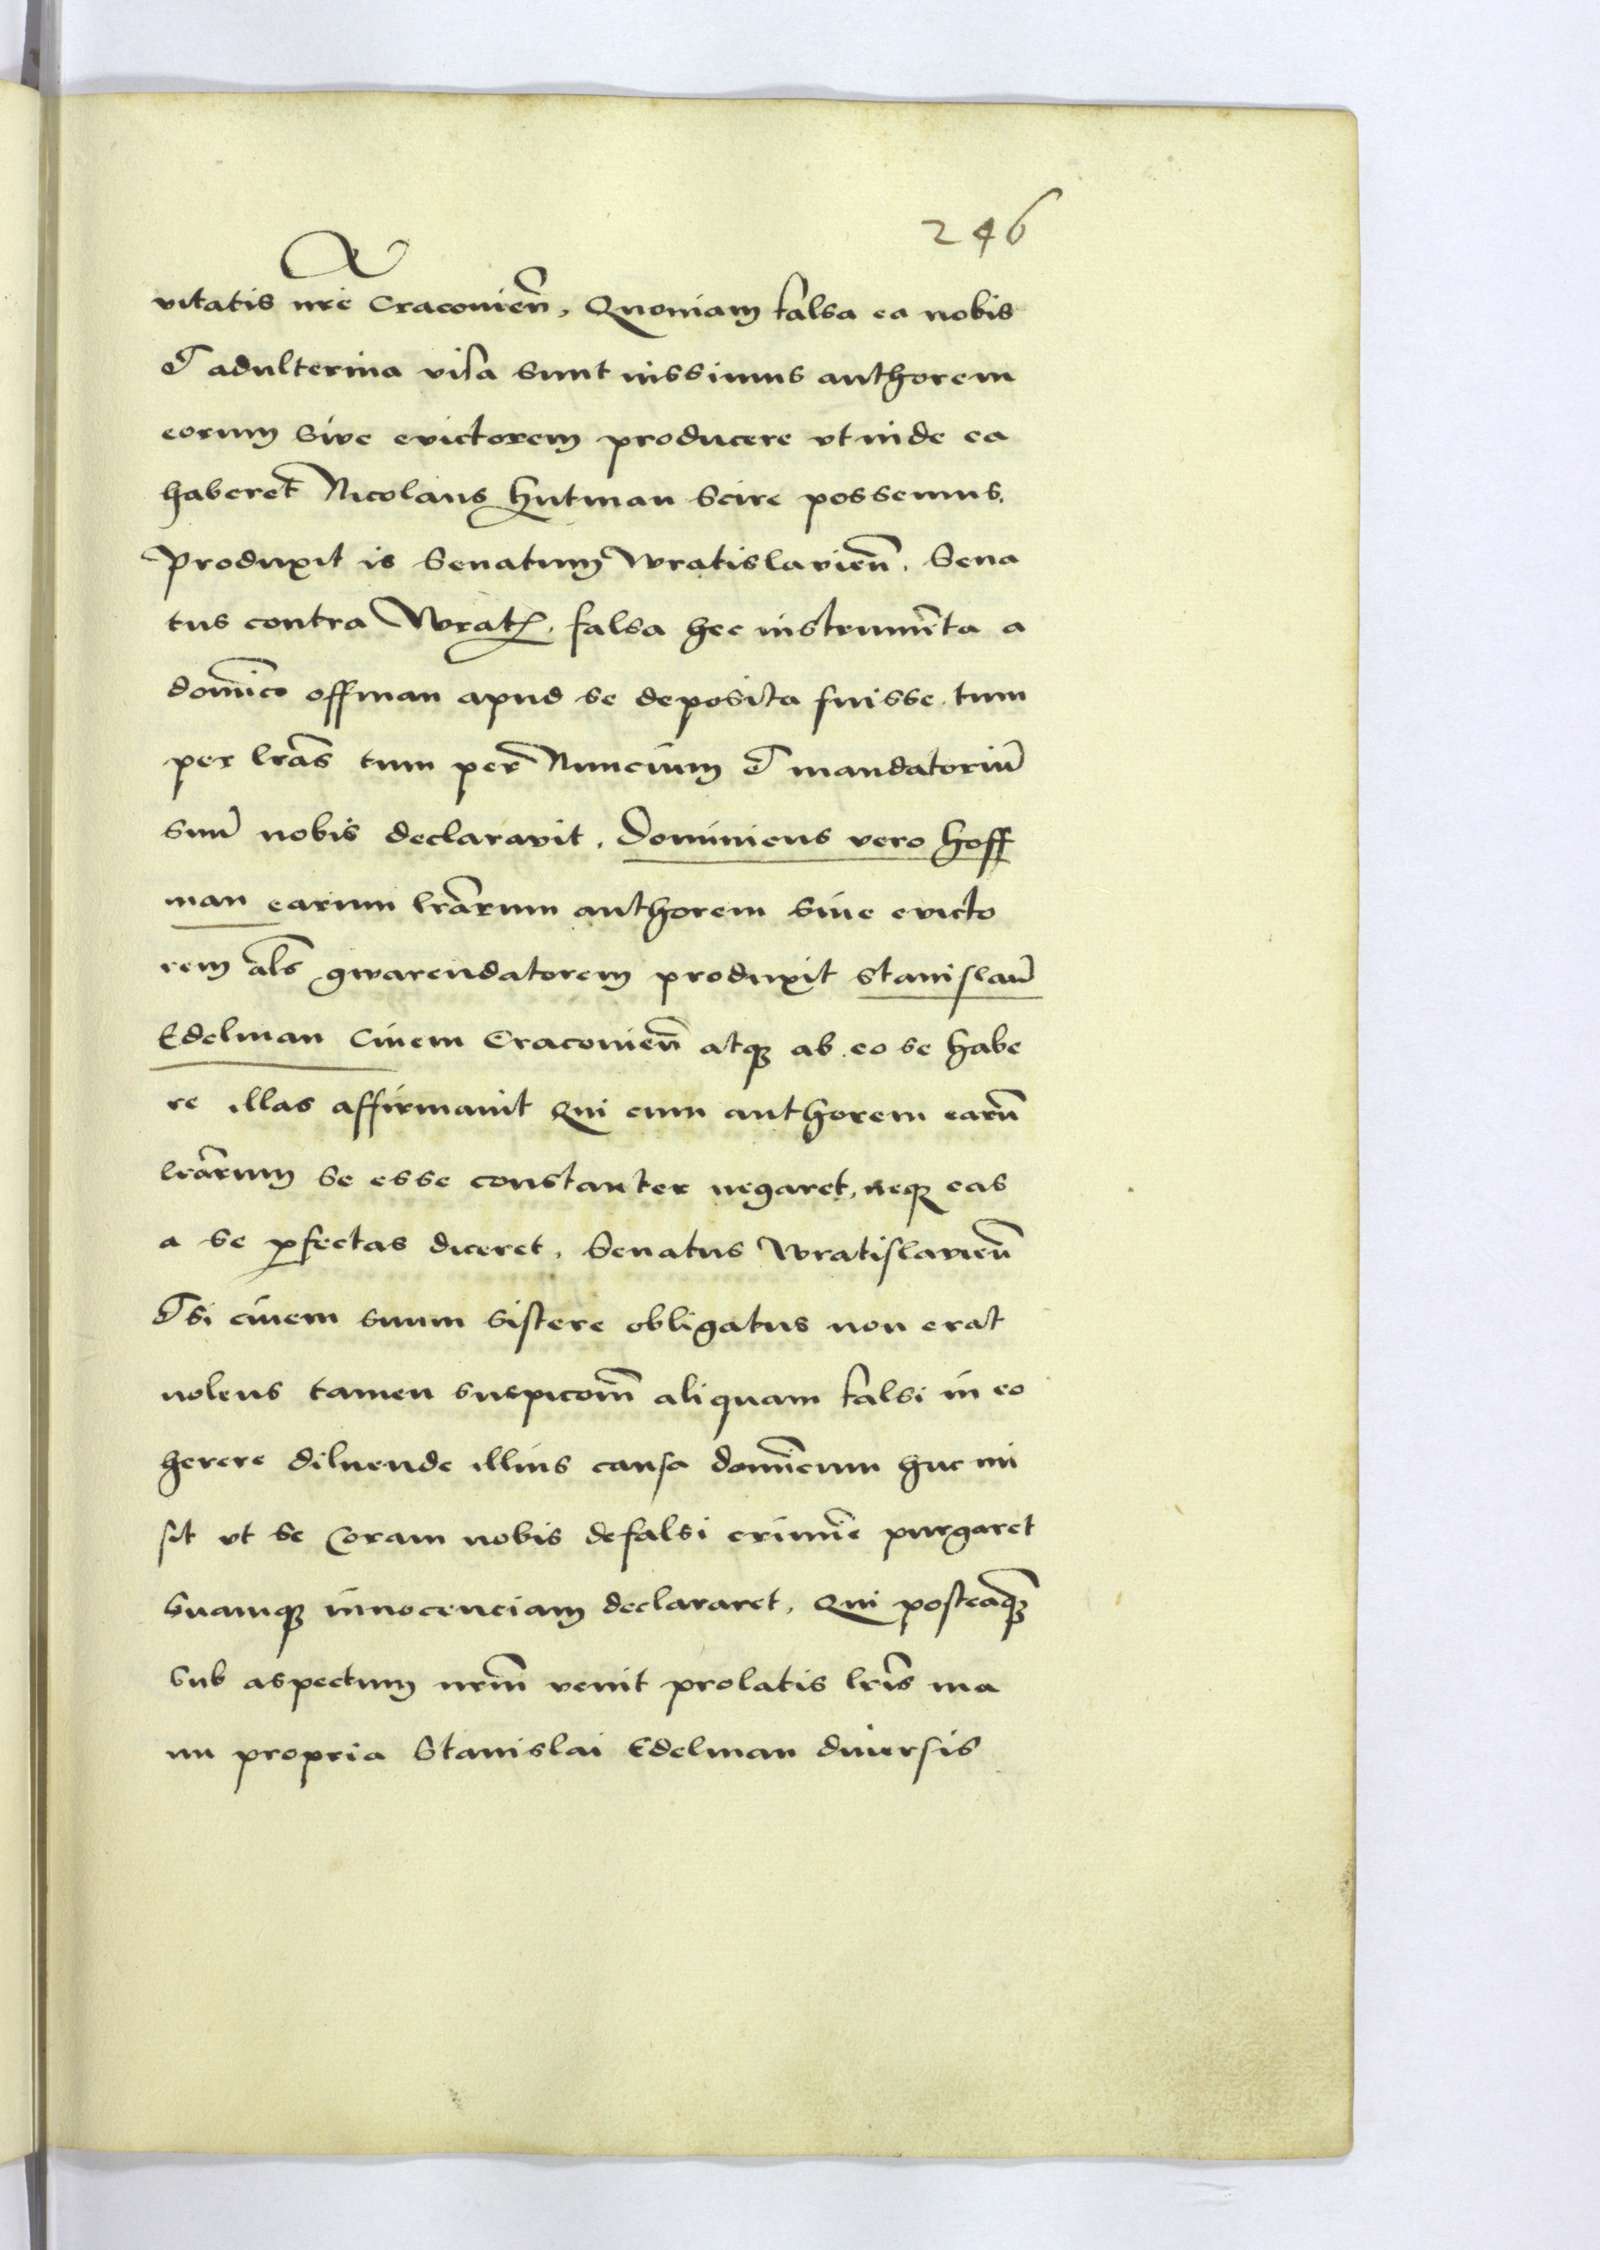 246
vitatis nr̄e Cracovieñ, Quoniam falsa ea nobis
Et adulterina visa sunt iussimus authorem
eorum sive evictorem producere vt inde ea
haberet Nicolaus Hutman scire possemus.
Produxit is Senatum Wratislavieñ. Sena
tus contra Wrat. falsa hec instrumēta a
domīico offman apud se deposita fuisse. tum
per lr̄as tum per Nuncium Et mandatoriū
suū nobis declaravit. Dominicus vero Hoff
man earum lr̄arum authorem sive evicto
rem al̄s gwarendatorem produxit Stanislaū
Edelman Civem Cracovieñ atq̨ ab eo se habe
re illas affirmavit Qui cum authorem earū
lr̄arum se esse constanter negaret, neq̨ eas
a se ꝓfectas diceret, Senatus Wratislavieñ
Etsi civem suum sistere obligatus non erat
nolens tamen suspicōem aliquam falsi in eo
herere diluende illius causa domīcum huc mi
sit vt se Coram nobis de falsi crimīe purgaret
Suamq̨ innocenciam declararet, Qui posteaq̨̄
sub aspectum nr̄m venit prolatis lr̄is ma
nu propria Stanislai Edelman diversis